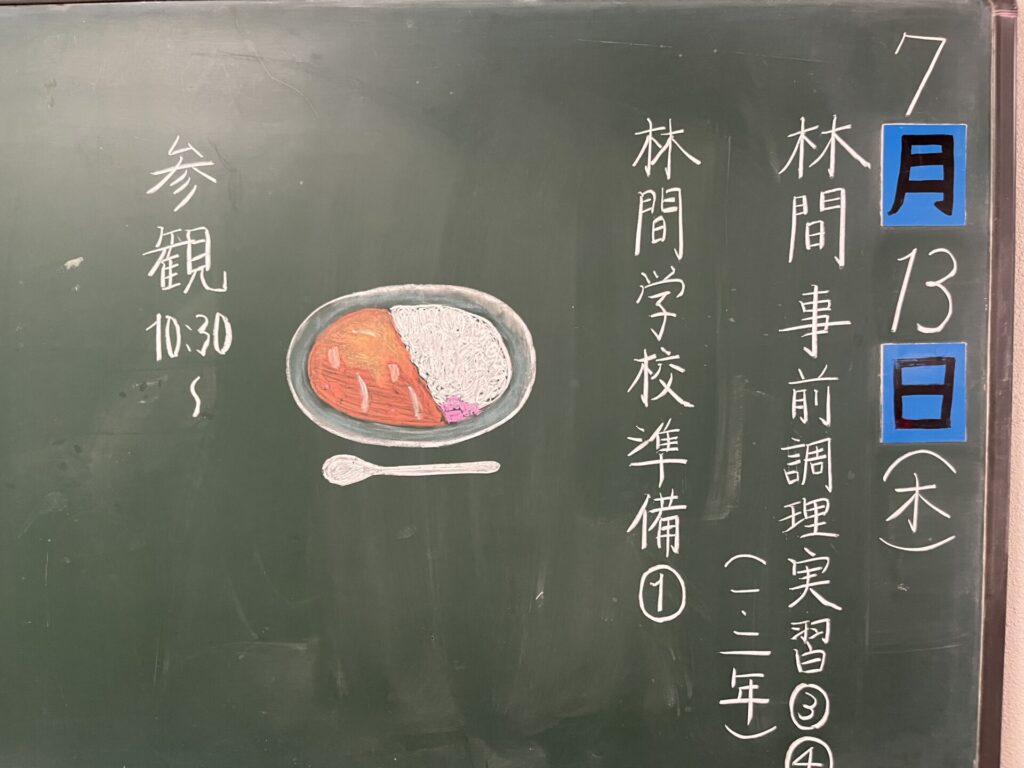 7月13日(木)
林間事前調理実習③④
(一・二年)
林間学校準備①
参観
10:30
～